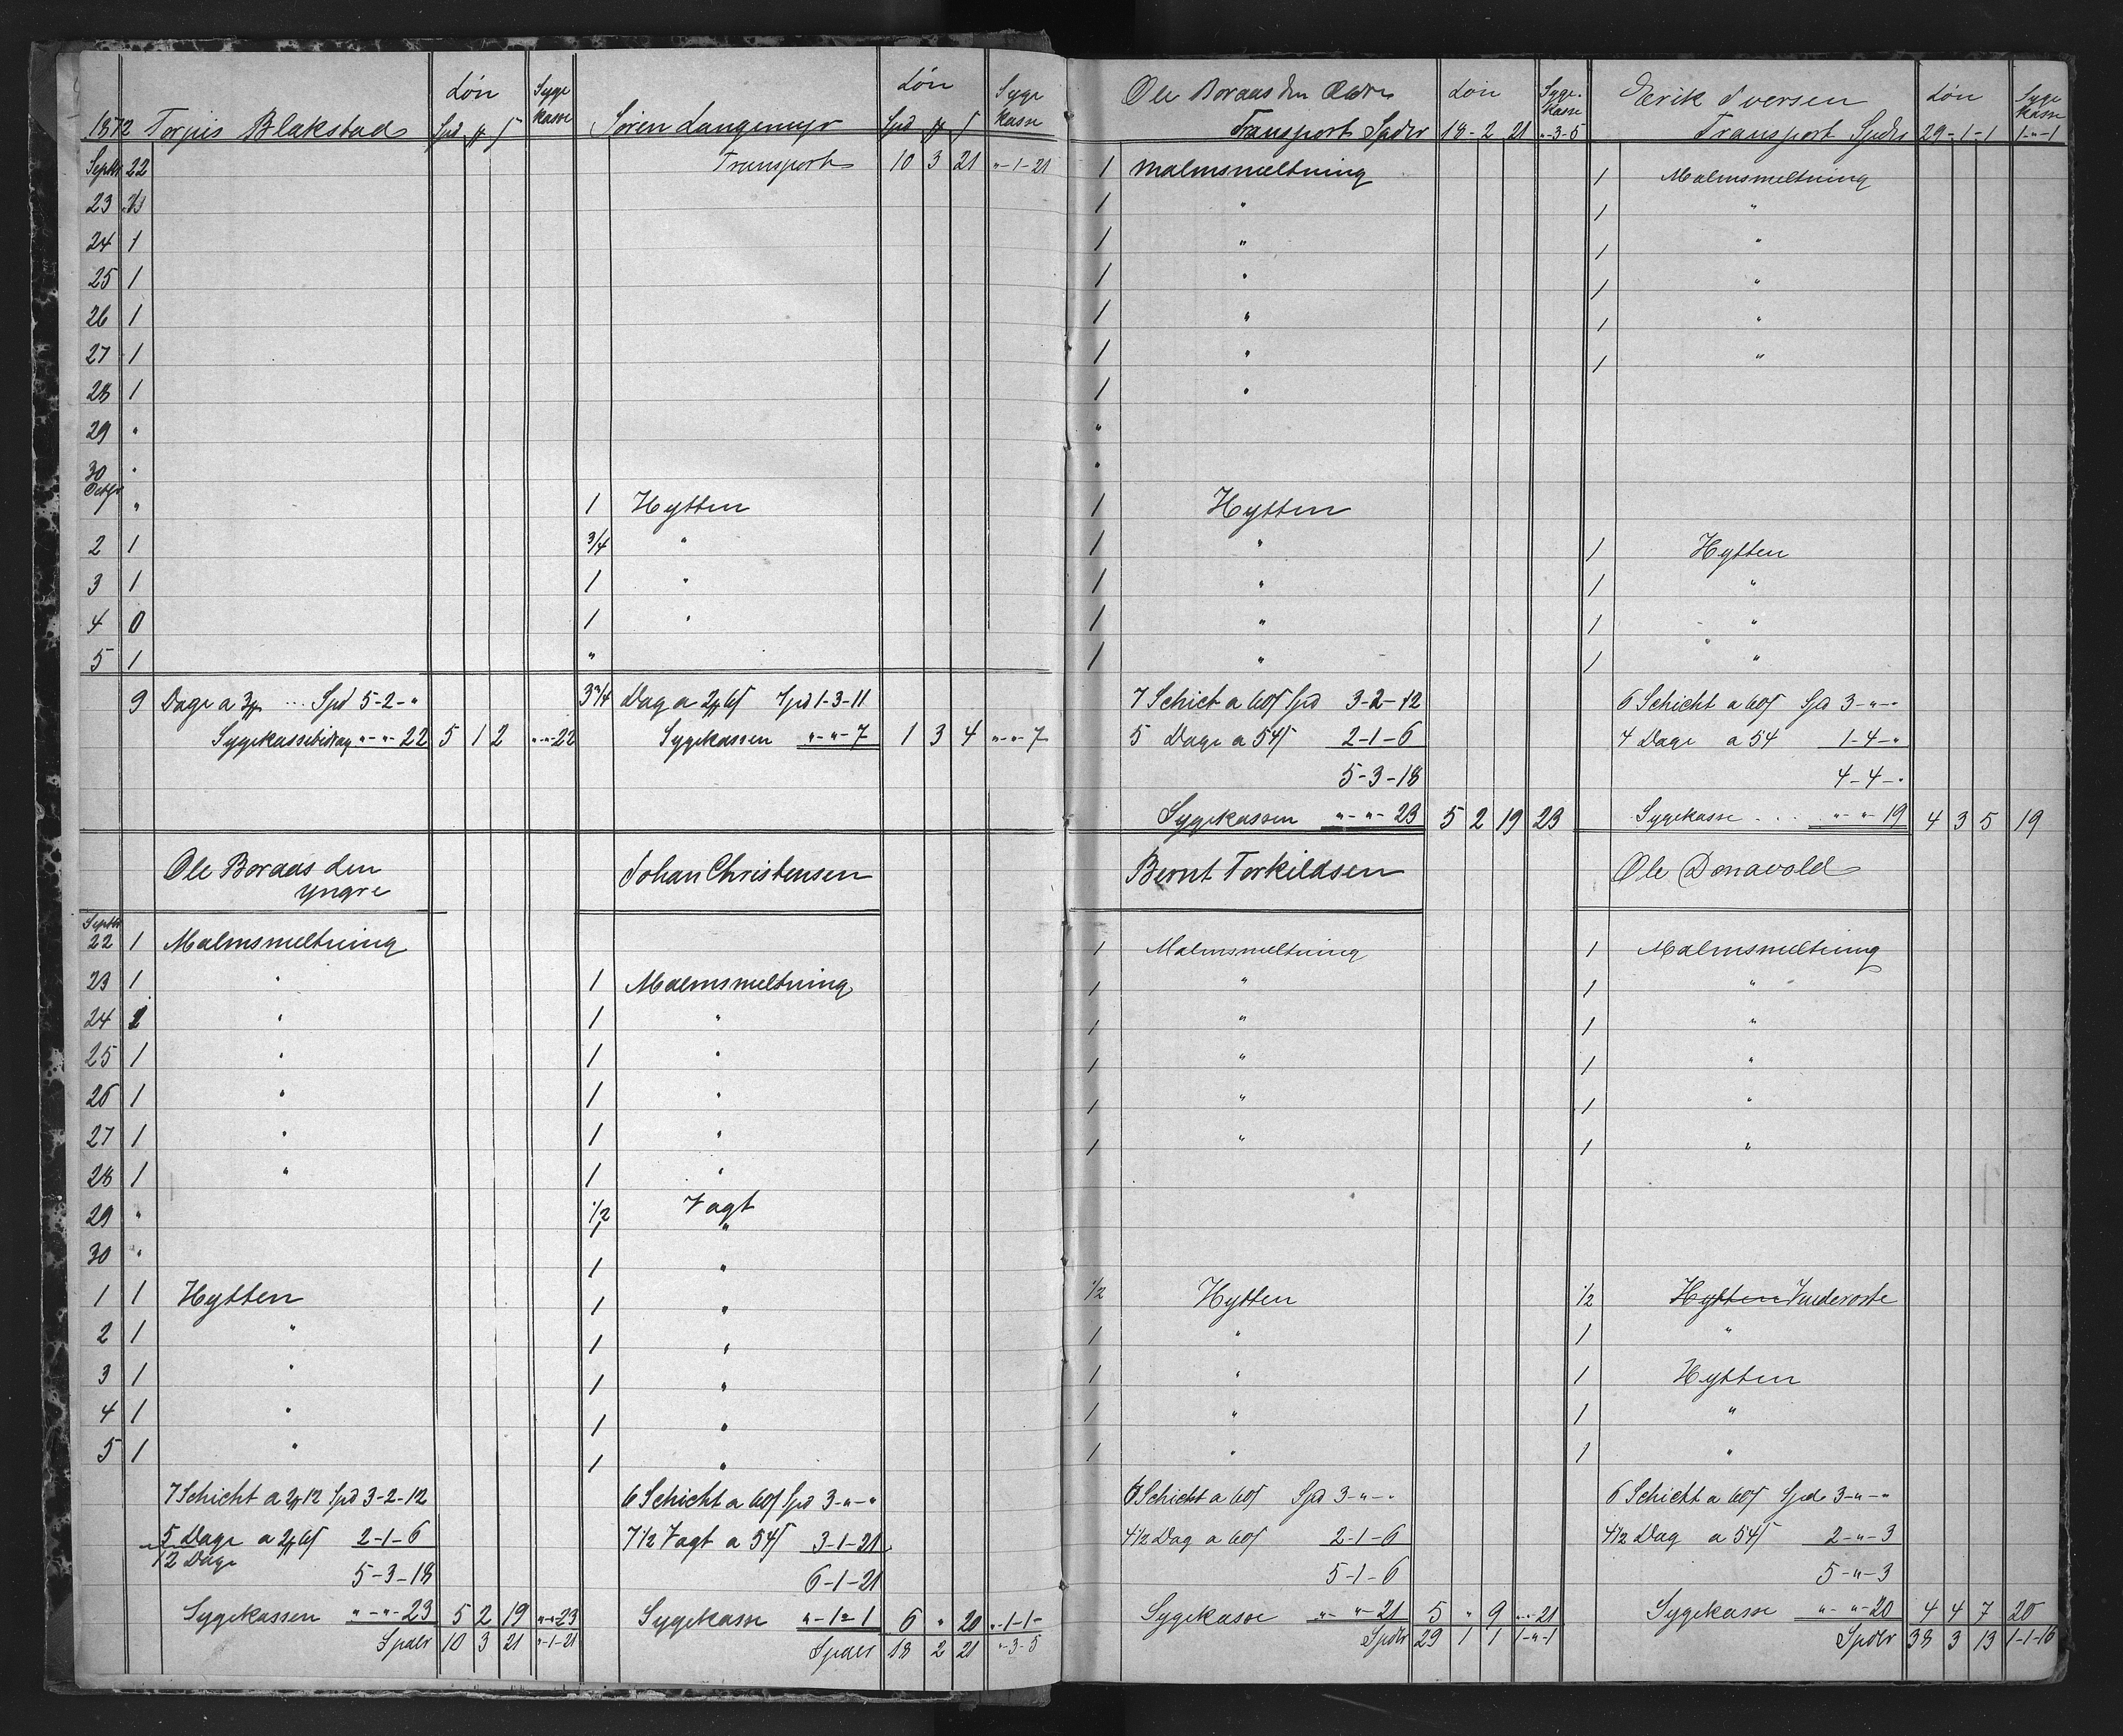 Løn Syge
1872 Torjus Blakstad Spd kasse
Septbr 22
23 1
24 1
25 1
26 1
27 1
28 1
29 "
30 "
Octbr
1 "
2 1
3 1
4 0
5 1
9 Dage a 3 ... Spd 5-2-"
Sygekassebidrag "-"-22 5 1 2 "-"-22
Ole Boraas den
yngre
Septbr
22 1 Malmsmeltning
23 1 "
24 1 "
25 1 "
26 1 "
27 1 "
28 1 "
29 "
30 "
1 1 Hytten
2 1 "
3 1 "
4 1 "
5 1 "
7 Schicht a 2 12 Spd 3-2-12
5 Dage a 2 6 2-1-6
12 Dage
5-3-18
Sygekassen "-"-23 5 2 19 "-"-23
Spdlr 10 3 21 "-1-21
Løn Syge
Søren Langemyr Spd kasse
Transport 10 3 21 "-1-21
1 Hytten
3/4 "
1 "
1 "
"
3 3/4 Dag a 2 6 Spd 1-3-11
Sygekassen "-"-7 1 3 4 "-"-7
Johan Christensen
1 Malmsmeltning
1 "
1 "
1 "
1 "
1 "
1/2 Vagt
1 "
1 "
1 "
1 "
1 "
1 "
1 "
6 Schicht a 60 Spd 3-"-"
7 1/2 Vagt a 54 3-1-21
6-1-21
Sygekasse "-1-1 6 " 20 "-1-1-
Spdlr 18 2 21 "-3-5
Ole Boraas den Ældre Løn Syge-
kasse
Transport Spdlr 18-2 21 "-3-5
1 Malmsmeltning
1 "
1 "
1 "
1 "
1 "
1 "
"
"
1 Hytten
1 "
1 "
1 "
1 "
7 Schict a 60 Spd 3-2-12
5 Dage a 54 2-1-6
5-3-18
Sygekassen "-"-23 5 2 19 23
Bernt Torkildsen
1 Malmsmeltning
1 "
1 "
1 "
1 "
1 "
1/2 Hytten
1 "
1 "
1 "
1 "
6 Schicht a 60 Spd 3-"-"
4 1/2 Dag a 60 2-1-6
5-1-6
Sygekasse "-"-21 5 " 9 "-"-21
Spdlr 29 1 1 1-"-1
Erik Iversen Løn Syge
kasse
Transport Spdlr 29-1-1 1-"-1
1 Malmsmeltning
1 "
1 "
1 "
1 "
1 "
1 Hytten
1 "
1 "
1 "
6 Schicht a 60 Spd 3-"-"
4 Dage a 54 1-4-"
4-4-"
Sygekasse ... "-"-19 4 3 5 19
Ole Donavold
1 Malmsmeltning
1 "
1 "
1 "
1 "
1 "
1/2 Hytten
1 "
1 Hytten
1 "
1 "
6 Schicht a 60 Spd 3-"-"
4 1/2 Dag a 54 2-"-3
5-"-3
Sygekasse "-"-20 4 4 7 20
Spdlr 38 3 13 1-1-16